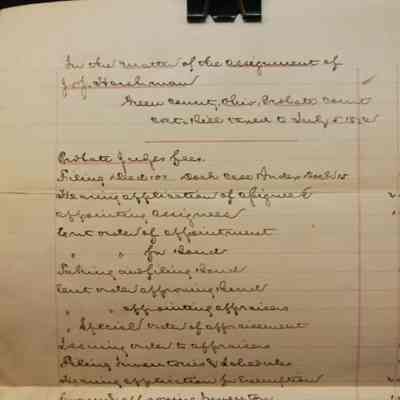 In the matter of the assignment of
J. & J. Harshman
Green County, Ohio, Probate Court
Cost Bill taxed to July 5
Probate Judges fees.
Filing Deed 10c Dock Case Index
Hearing application of assignee
appointing assignees
Ent order of appointment
" " for Bond
Taking and filing Bond
Ent order approving Bond
" " appointing appraisers
" Special order of appraisement
Issuing order to appraisers
Filing Inventories & Schedules
Hearing application for Exemption